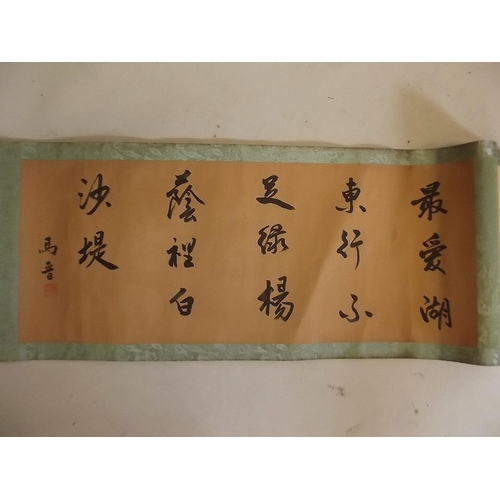 最爱湖
東行不
足绿楊
蔭裡白
沙堤
馬晉